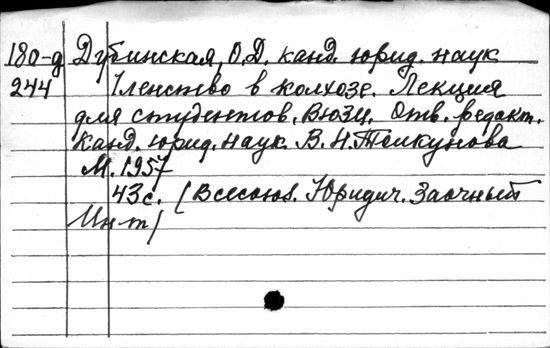 180-д Дубинская, О.Д. канд. юрид. наук
244 Членство в колхозе. Лекция
для студентов ВЮЗИ. Отв. редакт.
канд. юрид. наук В.Н. Толкунова
М. 1957
43с. (Всесоюз. Юридич. Заочный
Ин-т)